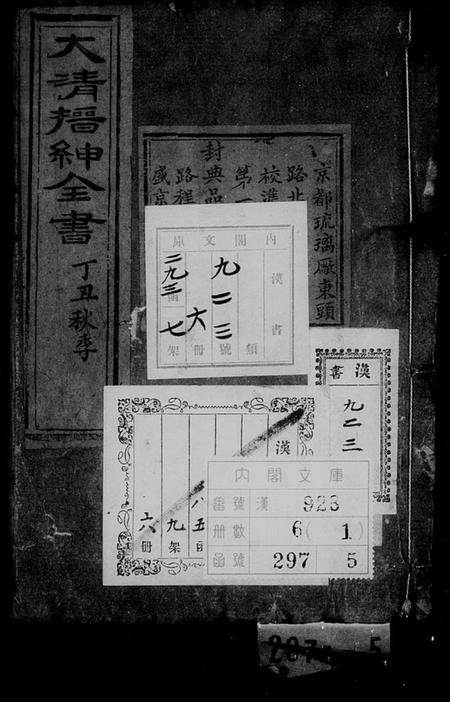 大清搢紳全書
丁丑秋季
京都琉璃厰東頭
路北
校準
第一
封典品
路程
盛京
內閣文庫
漢書
類
九二三號
六冊
二九三函
七架
漢書
九二三
漢
八五函
九架
六冊
內閣文庫
番號 漢 923
册數 6(1)
函號 297 5
297 5